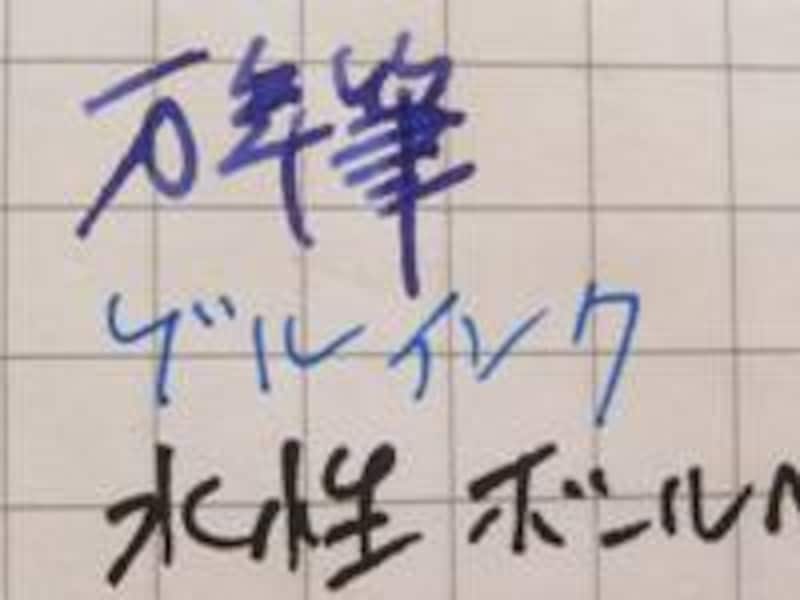 万年筆
ゲルインク
水性ボール